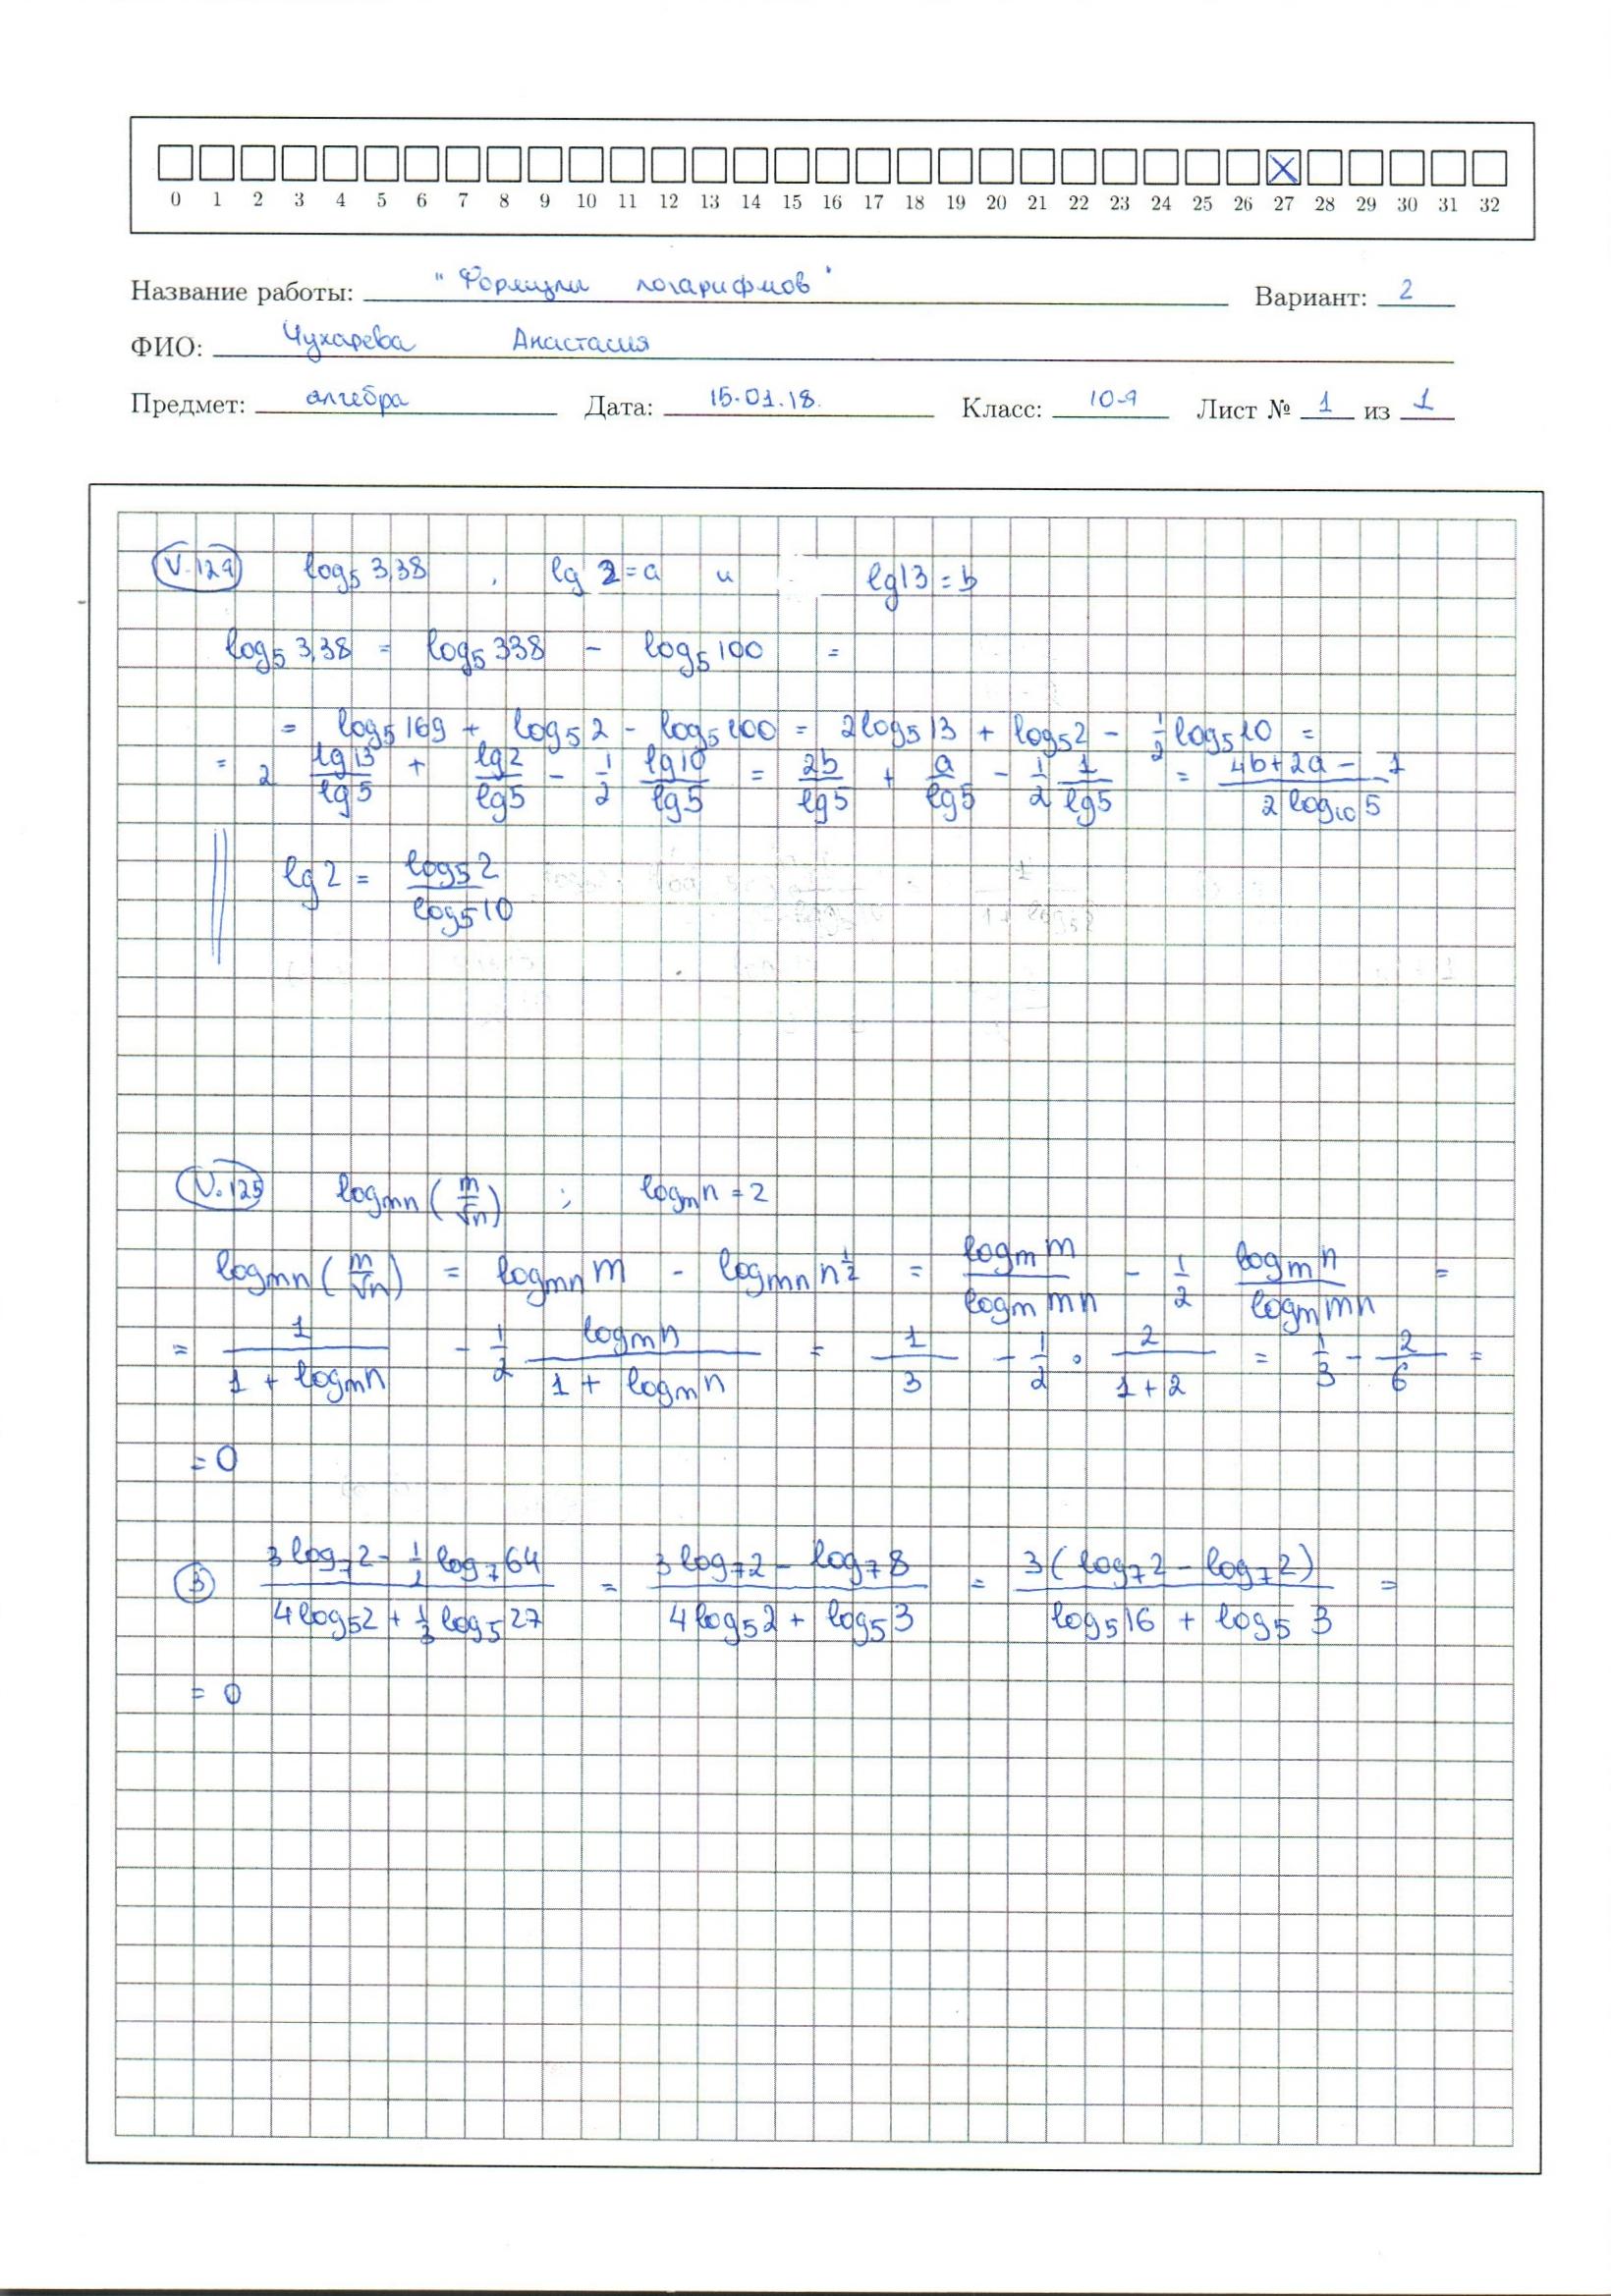 0 1 2 3 4 5 6 7 8 9 10 11 12 13 14 15 16 17 18 19 20 21 22 23 24 25 26 27 28 29 30 31 32
Название работы: "Формулы логарифмов" Вариант: 2
ФИО: Чухарева Анастасия
Предмет: алгебра Дата: 15.01.18. Класс: 10-9 Лист № 1 из 1
V.124 log₅ 3,38 , lg 2 = a и lg 13 = b
log₅ 3,38 = log₅ 338 - log₅ 100 =
= log₅ 169 + log₅ 2 - log₅ 100 = 2 log₅ 13 + log₅ 2 - 1/2 log₅ 10 =
= 2 lg 13 / lg 5 + lg 2 / lg 5 - 1/2 lg 10 / lg 5 = 2b / lg 5 + a / lg 5 - 1/2 1 / lg 5 = (4b + 2a - 1) / (2 log₁₀ 5)
lg 2 = log₅ 2 / log₅ 10
V.125 log_mn (m/√n) ; log_m n = 2
log_mn (m/√n) = log_mn m - log_mn n^(1/2) = log_m m / log_m mn - 1/2 log_m n / log_m mn =
= 1 / (1 + log_m n) - 1/2 log_m n / (1 + log_m n) = 1/3 - 1/2 · 2/(1+2) = 1/3 - 2/6 =
= 0
3 (3 log₇ 2 - 1/2 log₇ 64) / (4 log₅ 2 + 1/3 log₅ 27) = (3 log₇ 2 - log₇ 8) / (4 log₅ 2 + log₅ 3) = 3 (log₇ 2 - log₇ 2) / (log₅ 16 + log₅ 3) =
= 0